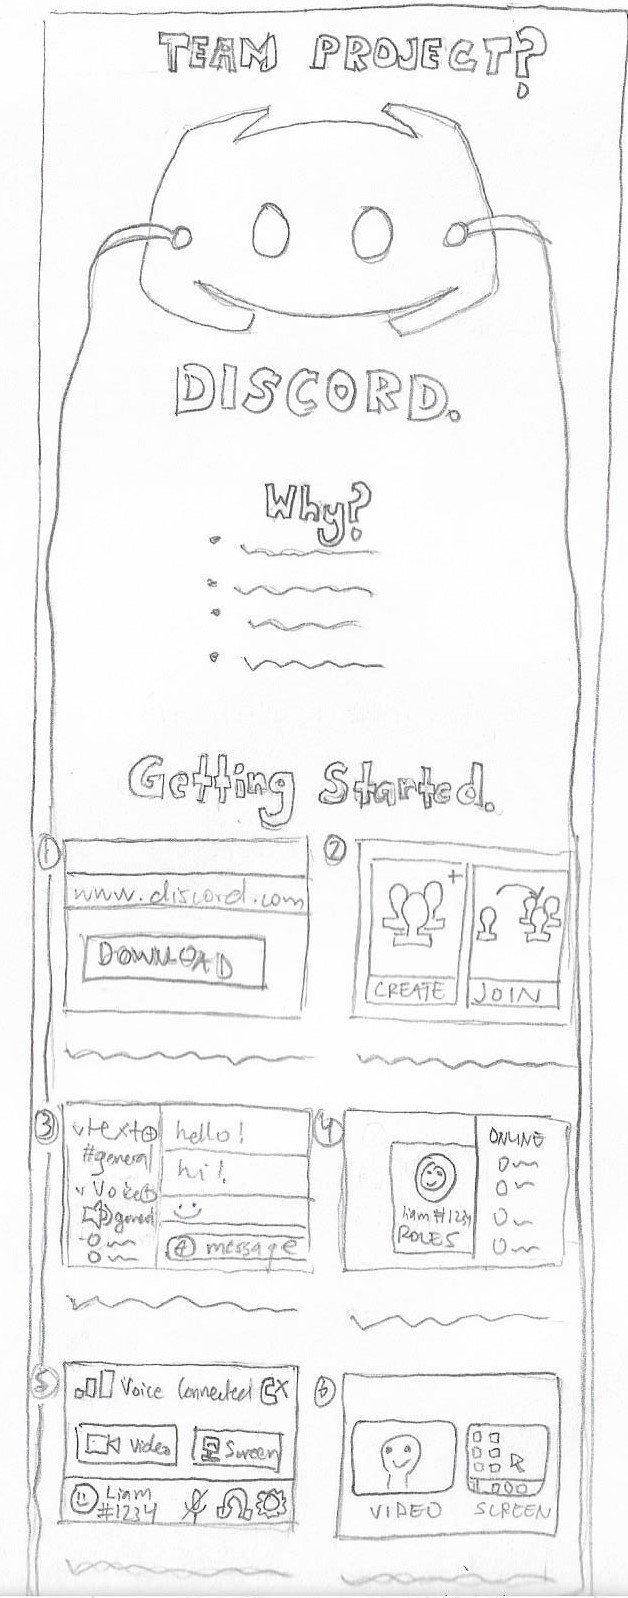 TEAM PROJECT?
DISCORD.
Why?
Getting Started.
1
www.discord.com
DOWNLOAD
2
CREATE
JOIN
3
text
#general
Voice
general
hello!
hi!
message
4
ONLINE
liam#1234
ROLES
5
Voice Connected
Video
Screen
Liam
#1234
6
VIDEO
SCREEN